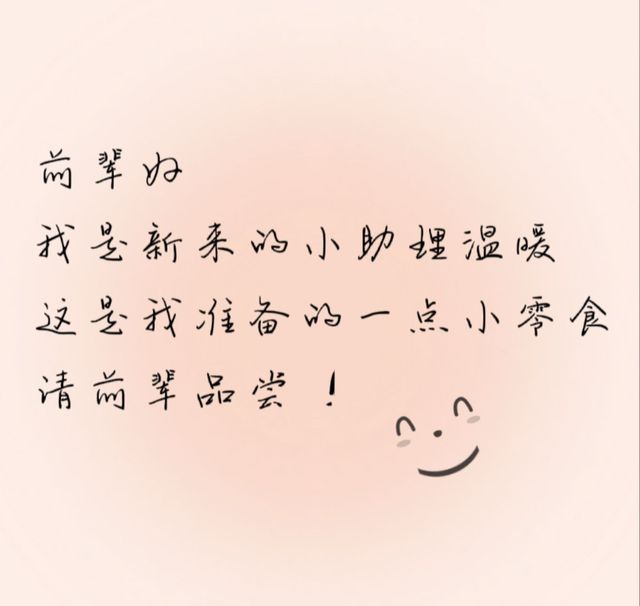 前辈好
我是新来的小助理温暖
这是我准备的一点小零食
请前辈品尝！